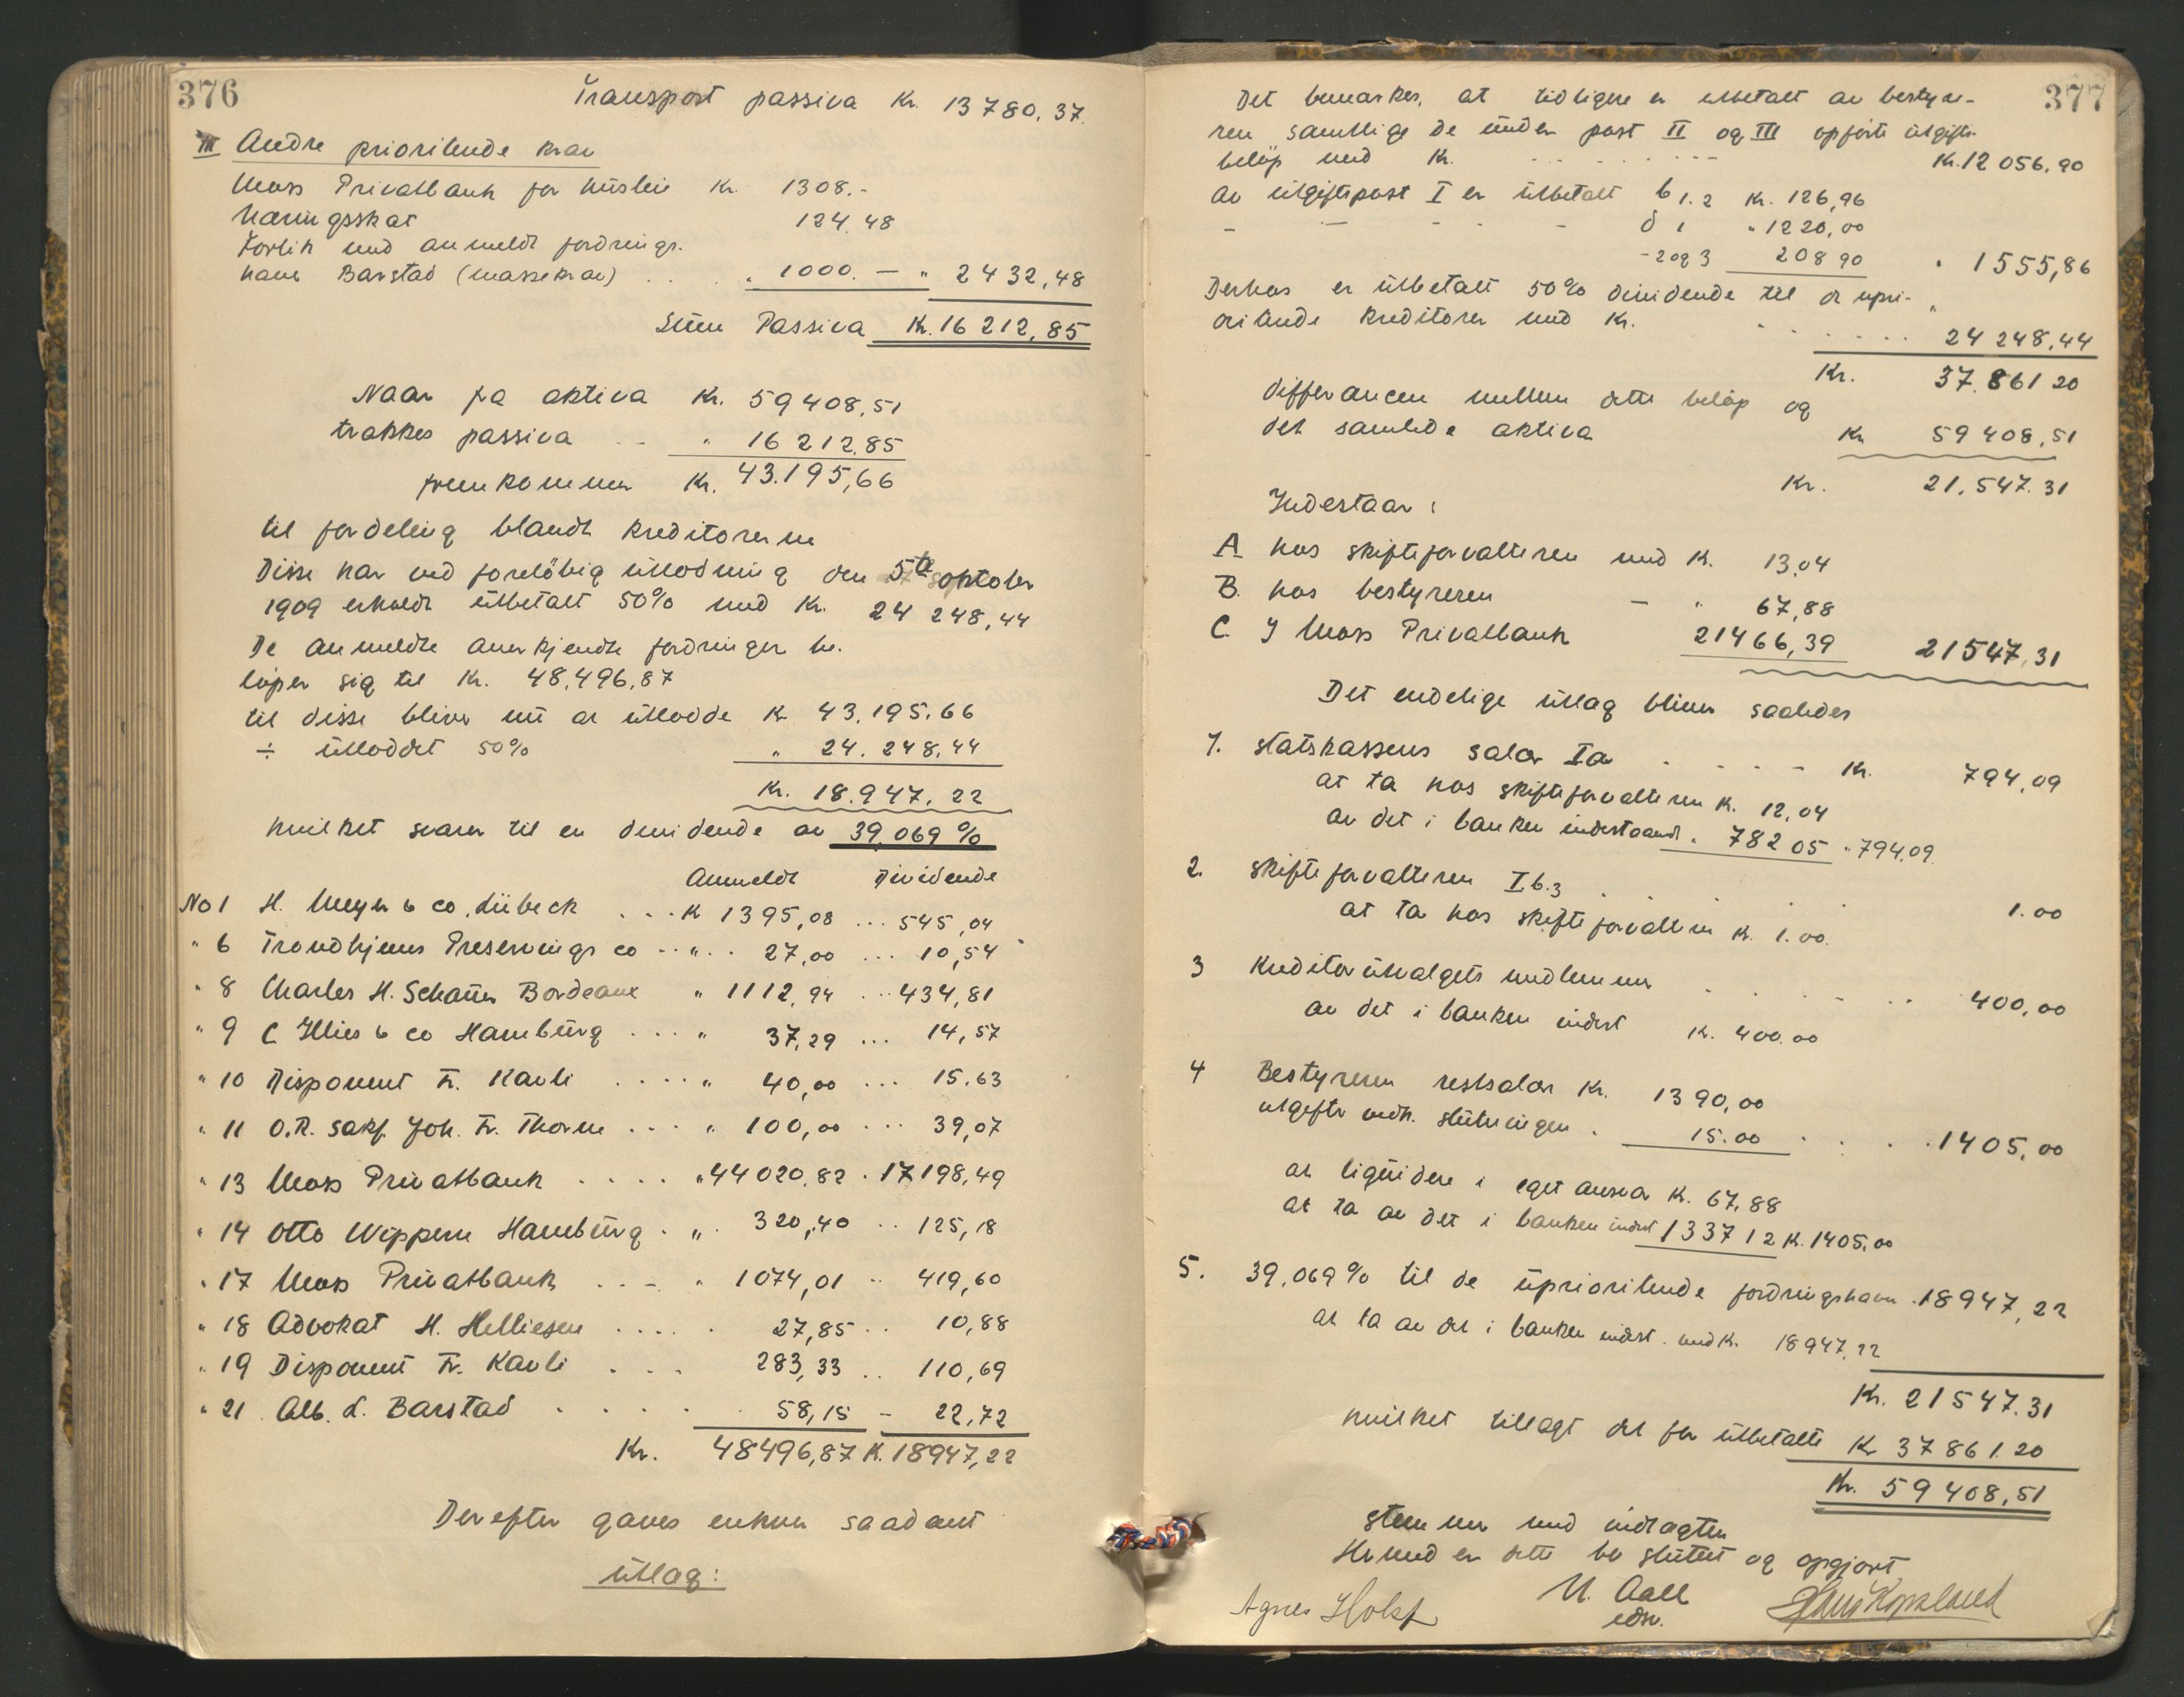 376
Transport passiva Kr. 13780,37.
III Andre prioriterede krav
Moss Privatbank for husleie Kr. 1308.-
Næringsskat 124.48
Forlik med anmeldt fordrings-
haver Barstad (massekrav) . . . " 1000. — " 2432,48
Sum Passiva Kr. 16 212,85
Naar fra aktiva Kr. 59408,51
trækkes passiva .. " 16 212,85
fremkommer Kr. 43.195,66
til fordeling blandt kreditorerne
Disse har ved foreløbig utlodning den 5te oktober
1909 erholdt utbetalt 50% med Kr. 24 248,44
De anmeldte anerkjendte fordringer be-
løper sig til Kr. 48,496,87
til disse bliver nu at utlodde K 43.195.66
÷ utloddet 50% " 24.248,44
Kr. 18.947,22
hvilket svarer til en dividende av 39,069 %
Anmeldt Dividende
No 1 H. Meyer & co, Lübeck ... K 1395,08 ... 545,04
" 6 Trondhjems Preservings co .. " .. 27,00 ... 10,54
" 8 Charles H. Schauer Bordeaux " 1112,94 ... 434,81
" 9 C Illies & co Hamburg .... " 37,29 ... 14,57
" 10 Disponent Fr. Kavli .... " 40,00 ... 15.63
" 11 O.R. sakf. Joh. Fr. Thorne ... " 100,00 ... 39,07
" 13 Moss Privatbank .... " 44020,82 . 17198,49
" 14 Otto Wippern Hamburg . " . 320,40 .. 125,18
" 17 Moss Privatbank ... " 1074,01 .. 419,60
" 18 Advokat H. Helliesen .... . 27,85 .. 10,88
" 19 Disponent Fr. Kavli ... 283,33 .. 110,69
" 21 . Alb. L. Barstad ..... 58,15 - 22,72
Kr. 48496,87 K. 18947,22
Derefter gaves enhver saadant
utlæg:
377
Det bemærkes, at tidligere er utbetalt av bestyre-
ren samtlige de under post II og III opførte utgifts-
beløp med Kr. ........ Kr. 12 056,90
av utgiftspost I er utbetalt b 1.2 Kr. 126,96
- — - - - d 1 " 1220,00
- 2 og 3 208 90 " 1555,86
Derhos er utbetalt 50% dividende til de upri-
oriterede kreditorer med Kr. ...... 24 248,44
Kr. 37.861 20
differancen mellem dette beløp og
det samlede aktiva Kr 59408,51
Kr. 21.547.31
Indestaar :
A hos skifteforvalteren med K. 13,04
B. hos bestyreren — " 67,88
C. I Moss Privatbank 21466,39 21547,31
Det endelige utlæg bliver saaledes
1. Statskassens salær Ia .... Kr. 794,09
at ta hos skifteforvalteren K. 12,04
av det i banken indestaaende . 782 05 " 794,09
2. Skifteforvalteren I.b.3 .... 1.00
at ta hos skifteforvalteren K. 1.00.
3 Kreditorutvalgets medlemmer ..... 400,00
av det i banken indest K. 400.00
4 Bestyreren restsalær Kr. 1390,00
utgifter vedk. slutningen . 15.00 .... 1405,00
at liquidere i eget ansvar K. 67,88
at ta av det i banken indest 1337 12 K. 1405.00
5. 39,069% til de uprioriterede fordringshavere . 18947,22
at ta av det i banken indest. med K. 18947,22
Kr. 21547.31
hvilket tillagt det før utbetalte Kr 37861.20
Kr. 59408,51
stemmer med indtægten
Hermed er dette bo sluttet og opgjort
Agnes Holst N. Aall
edsv.